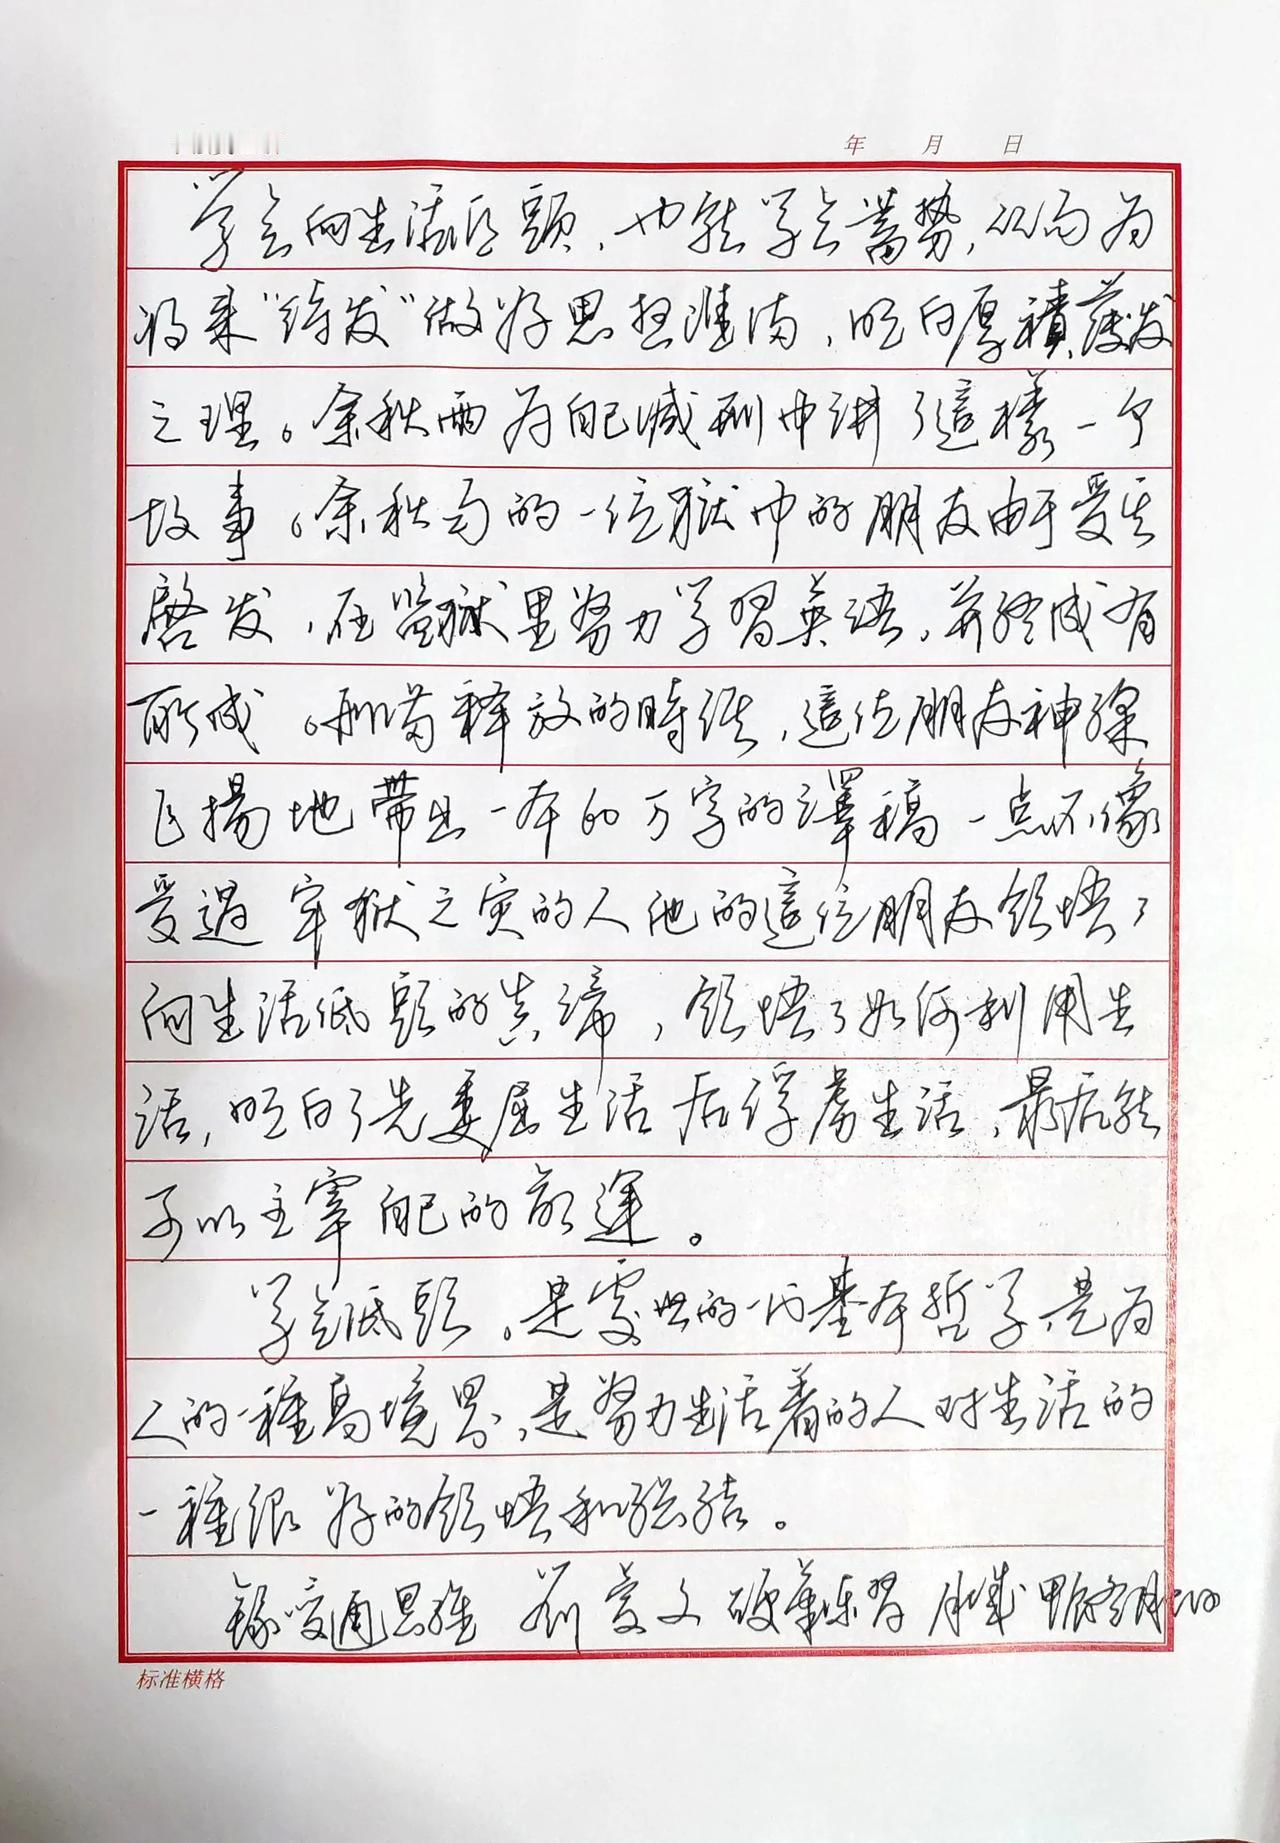 年 月 日
学会向生活低頭，也能学会蓄势，从而为
将来"待发"做好思想准备，明白厚積薄发
之理。余秋雨为自己减刑中讲了這樣一个
故事。余秋雨的一位獄中的朋友由于受其
啓发，在監獄里努力学習英语，并终成有
所成。刑满释放的時候，這位朋友神采
飞揚地带出一本60万字的譯稿一点不像
受過牢狱之灾的人他的這位朋友领悟了
向生活低頭的真谛，领悟了如何利用生
活，明白了先委屈生活后俘虏生活，最后能
予以主宰自己的命運。
学会低頭，是處世的一门基本哲学，是为
人的一種高境界，是努力生活着的人对生活的
一種很好的领悟和總结。
錄变通思維 刘爱文硬筆練習
标准横格